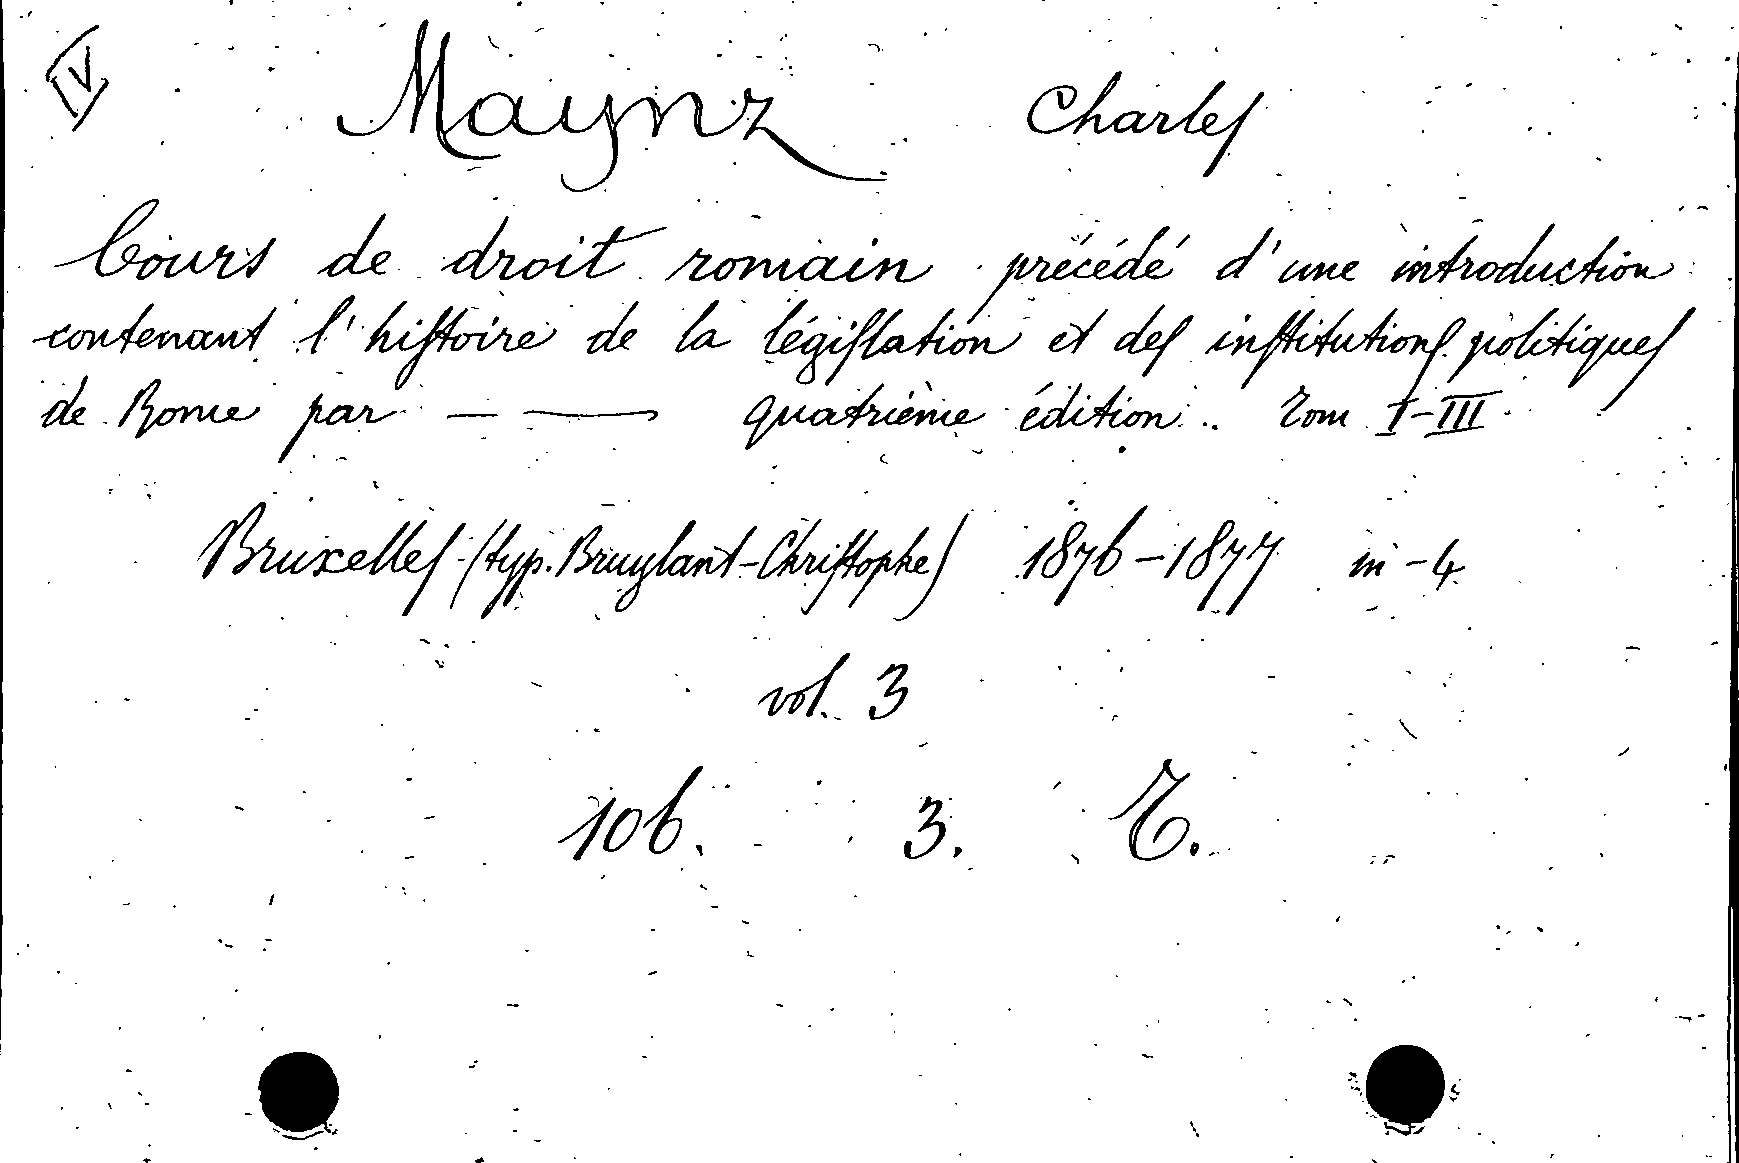 IV
Maynz Charles
Cours de droit romain précédé d'une introduction
contenant l'histoire de la législation et des institutions politiques
de Rome par — —— quatrième édition.. Tom I-III
Bruxelles (typ. Bruylant-Christophe) 1876-1877 in-4
vol. 3
106. 3. C.